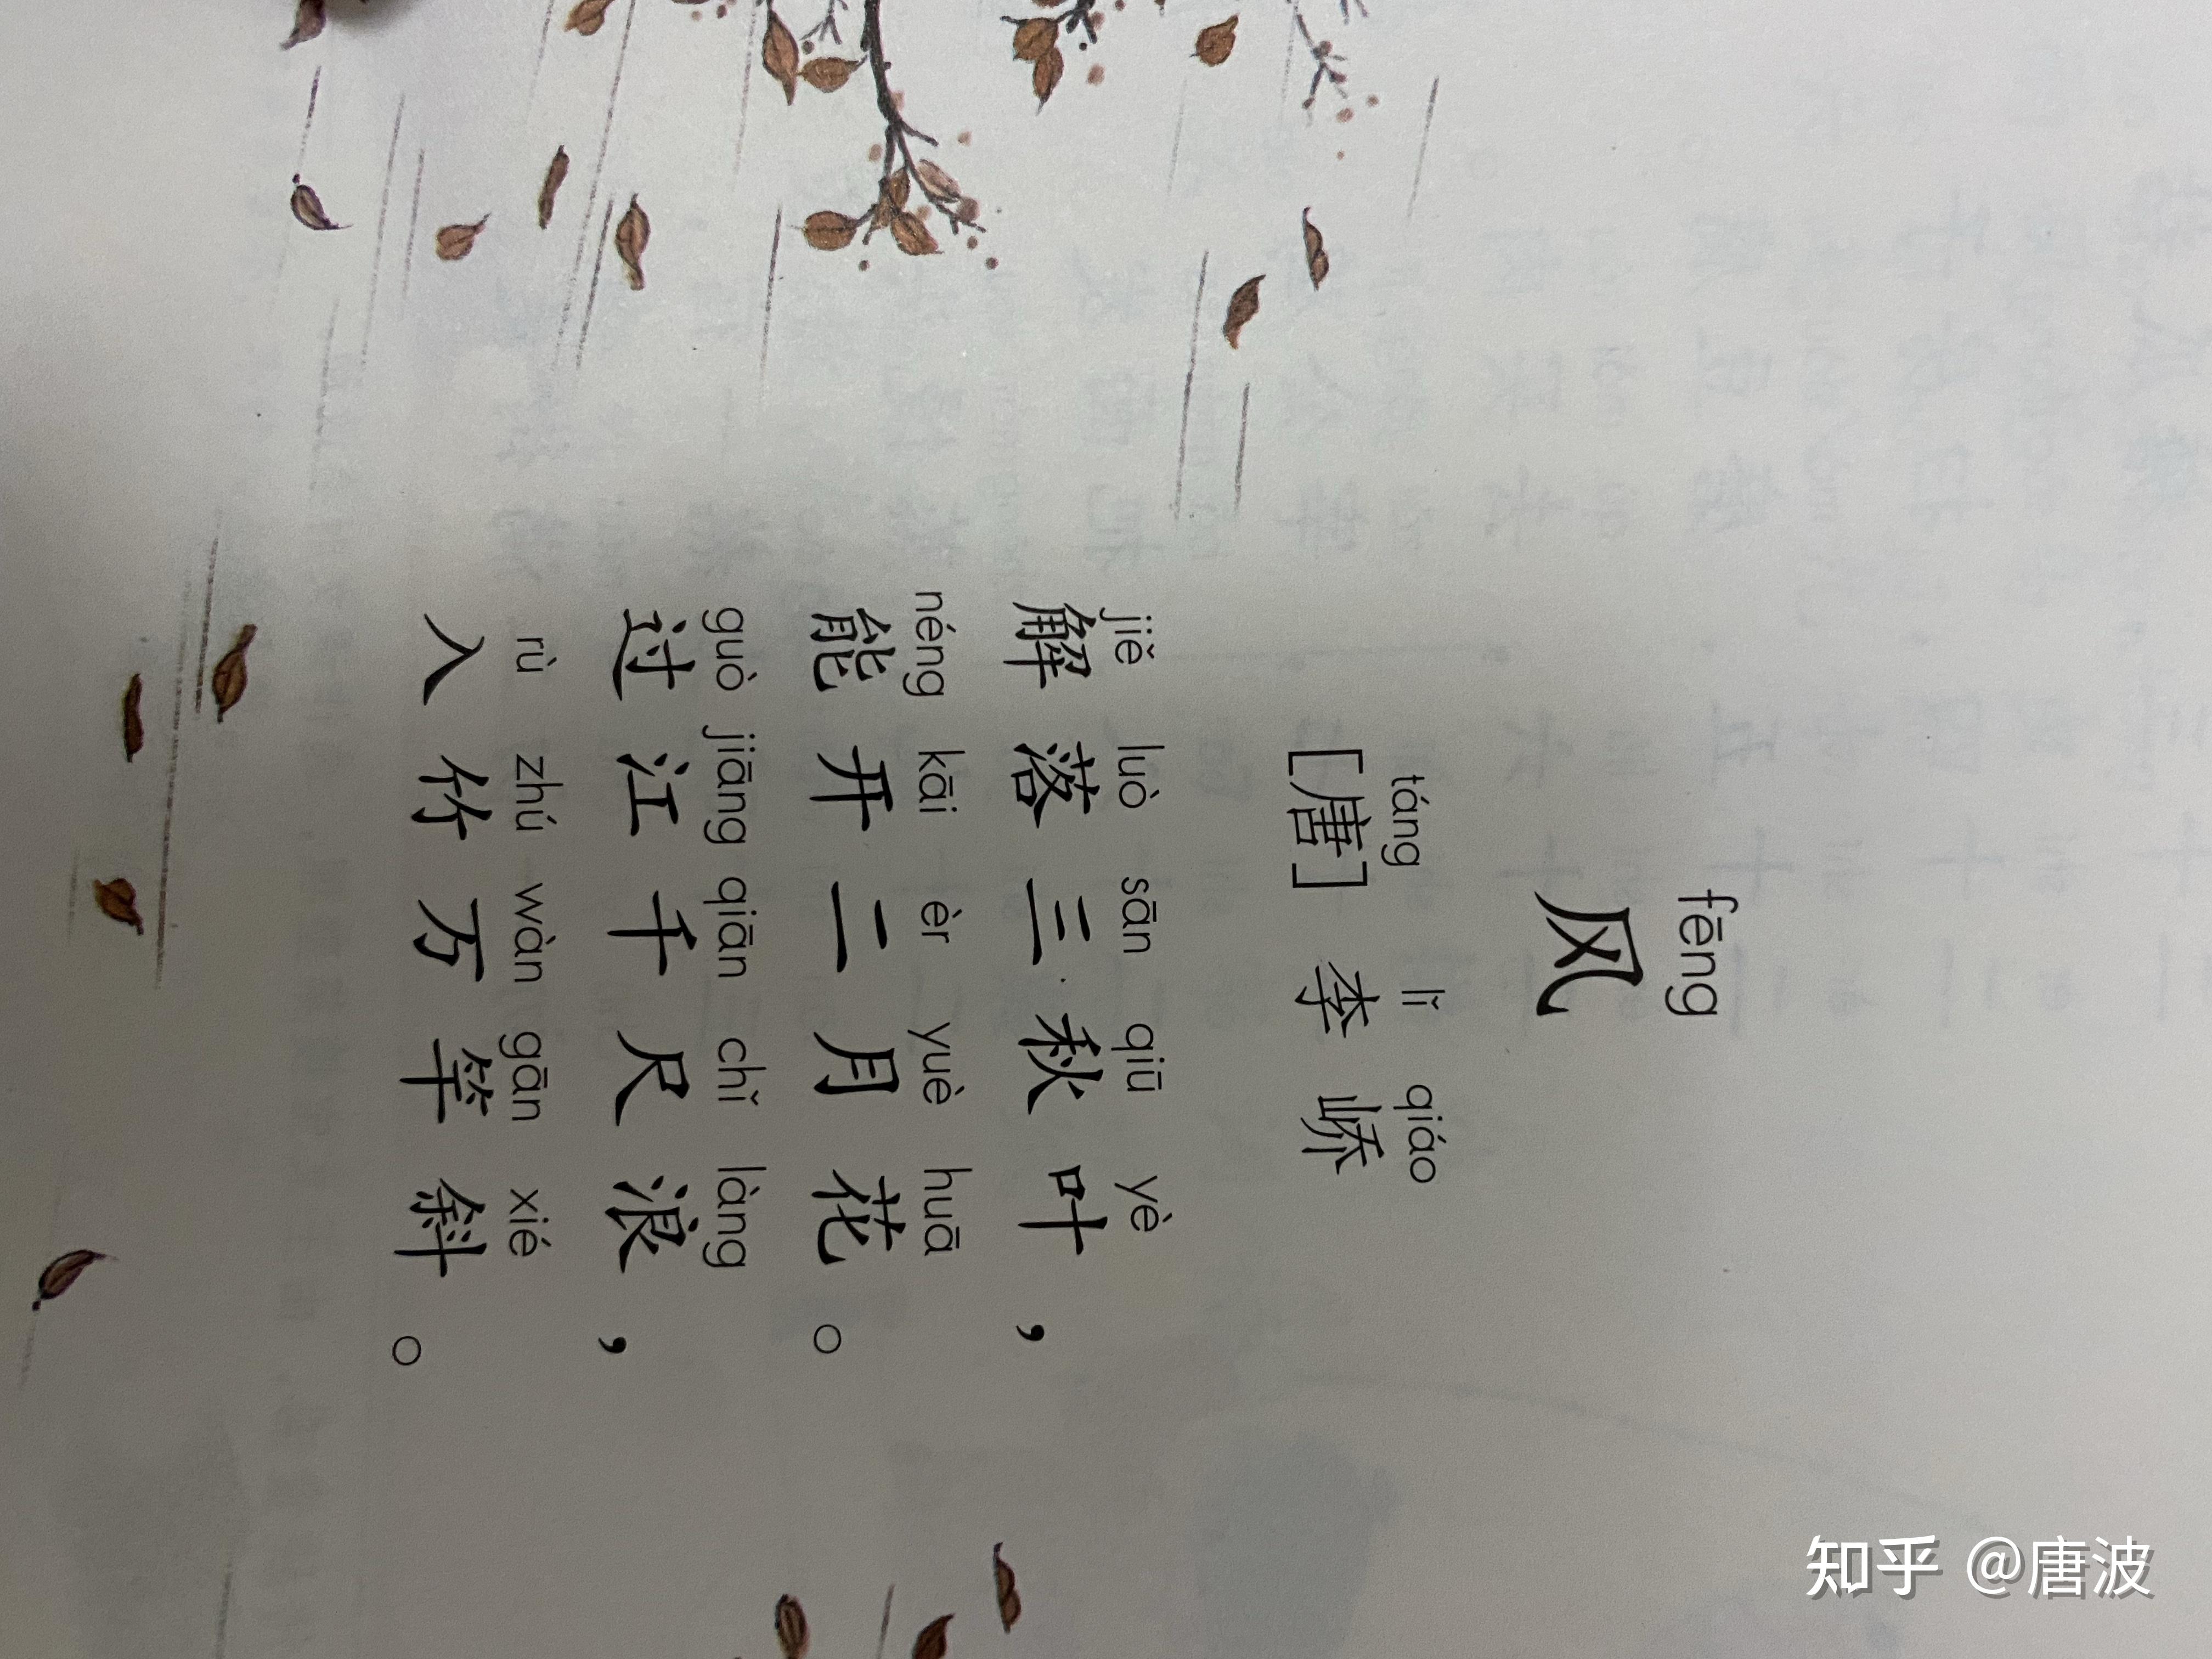 fēng
风
táng lǐ qiáo
[唐] 李 峤
jiě luò sān qiū yè
解落三秋叶，
néng kāi èr yuè huā
能开二月花。
guò jiāng qiān chǐ làng
过江千尺浪，
rù zhú wàn gān xié
入竹万竿斜。
知乎 @唐波